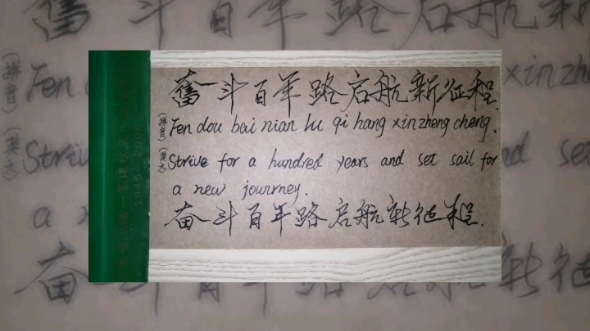 奋斗百年路启航新征程.
(拼音) Fen dou bai nian lu qi hang xin zheng cheng.
(英文) Strive for a hundred years and set sail for
a new jourrney.
奋斗百年路启航新征程.